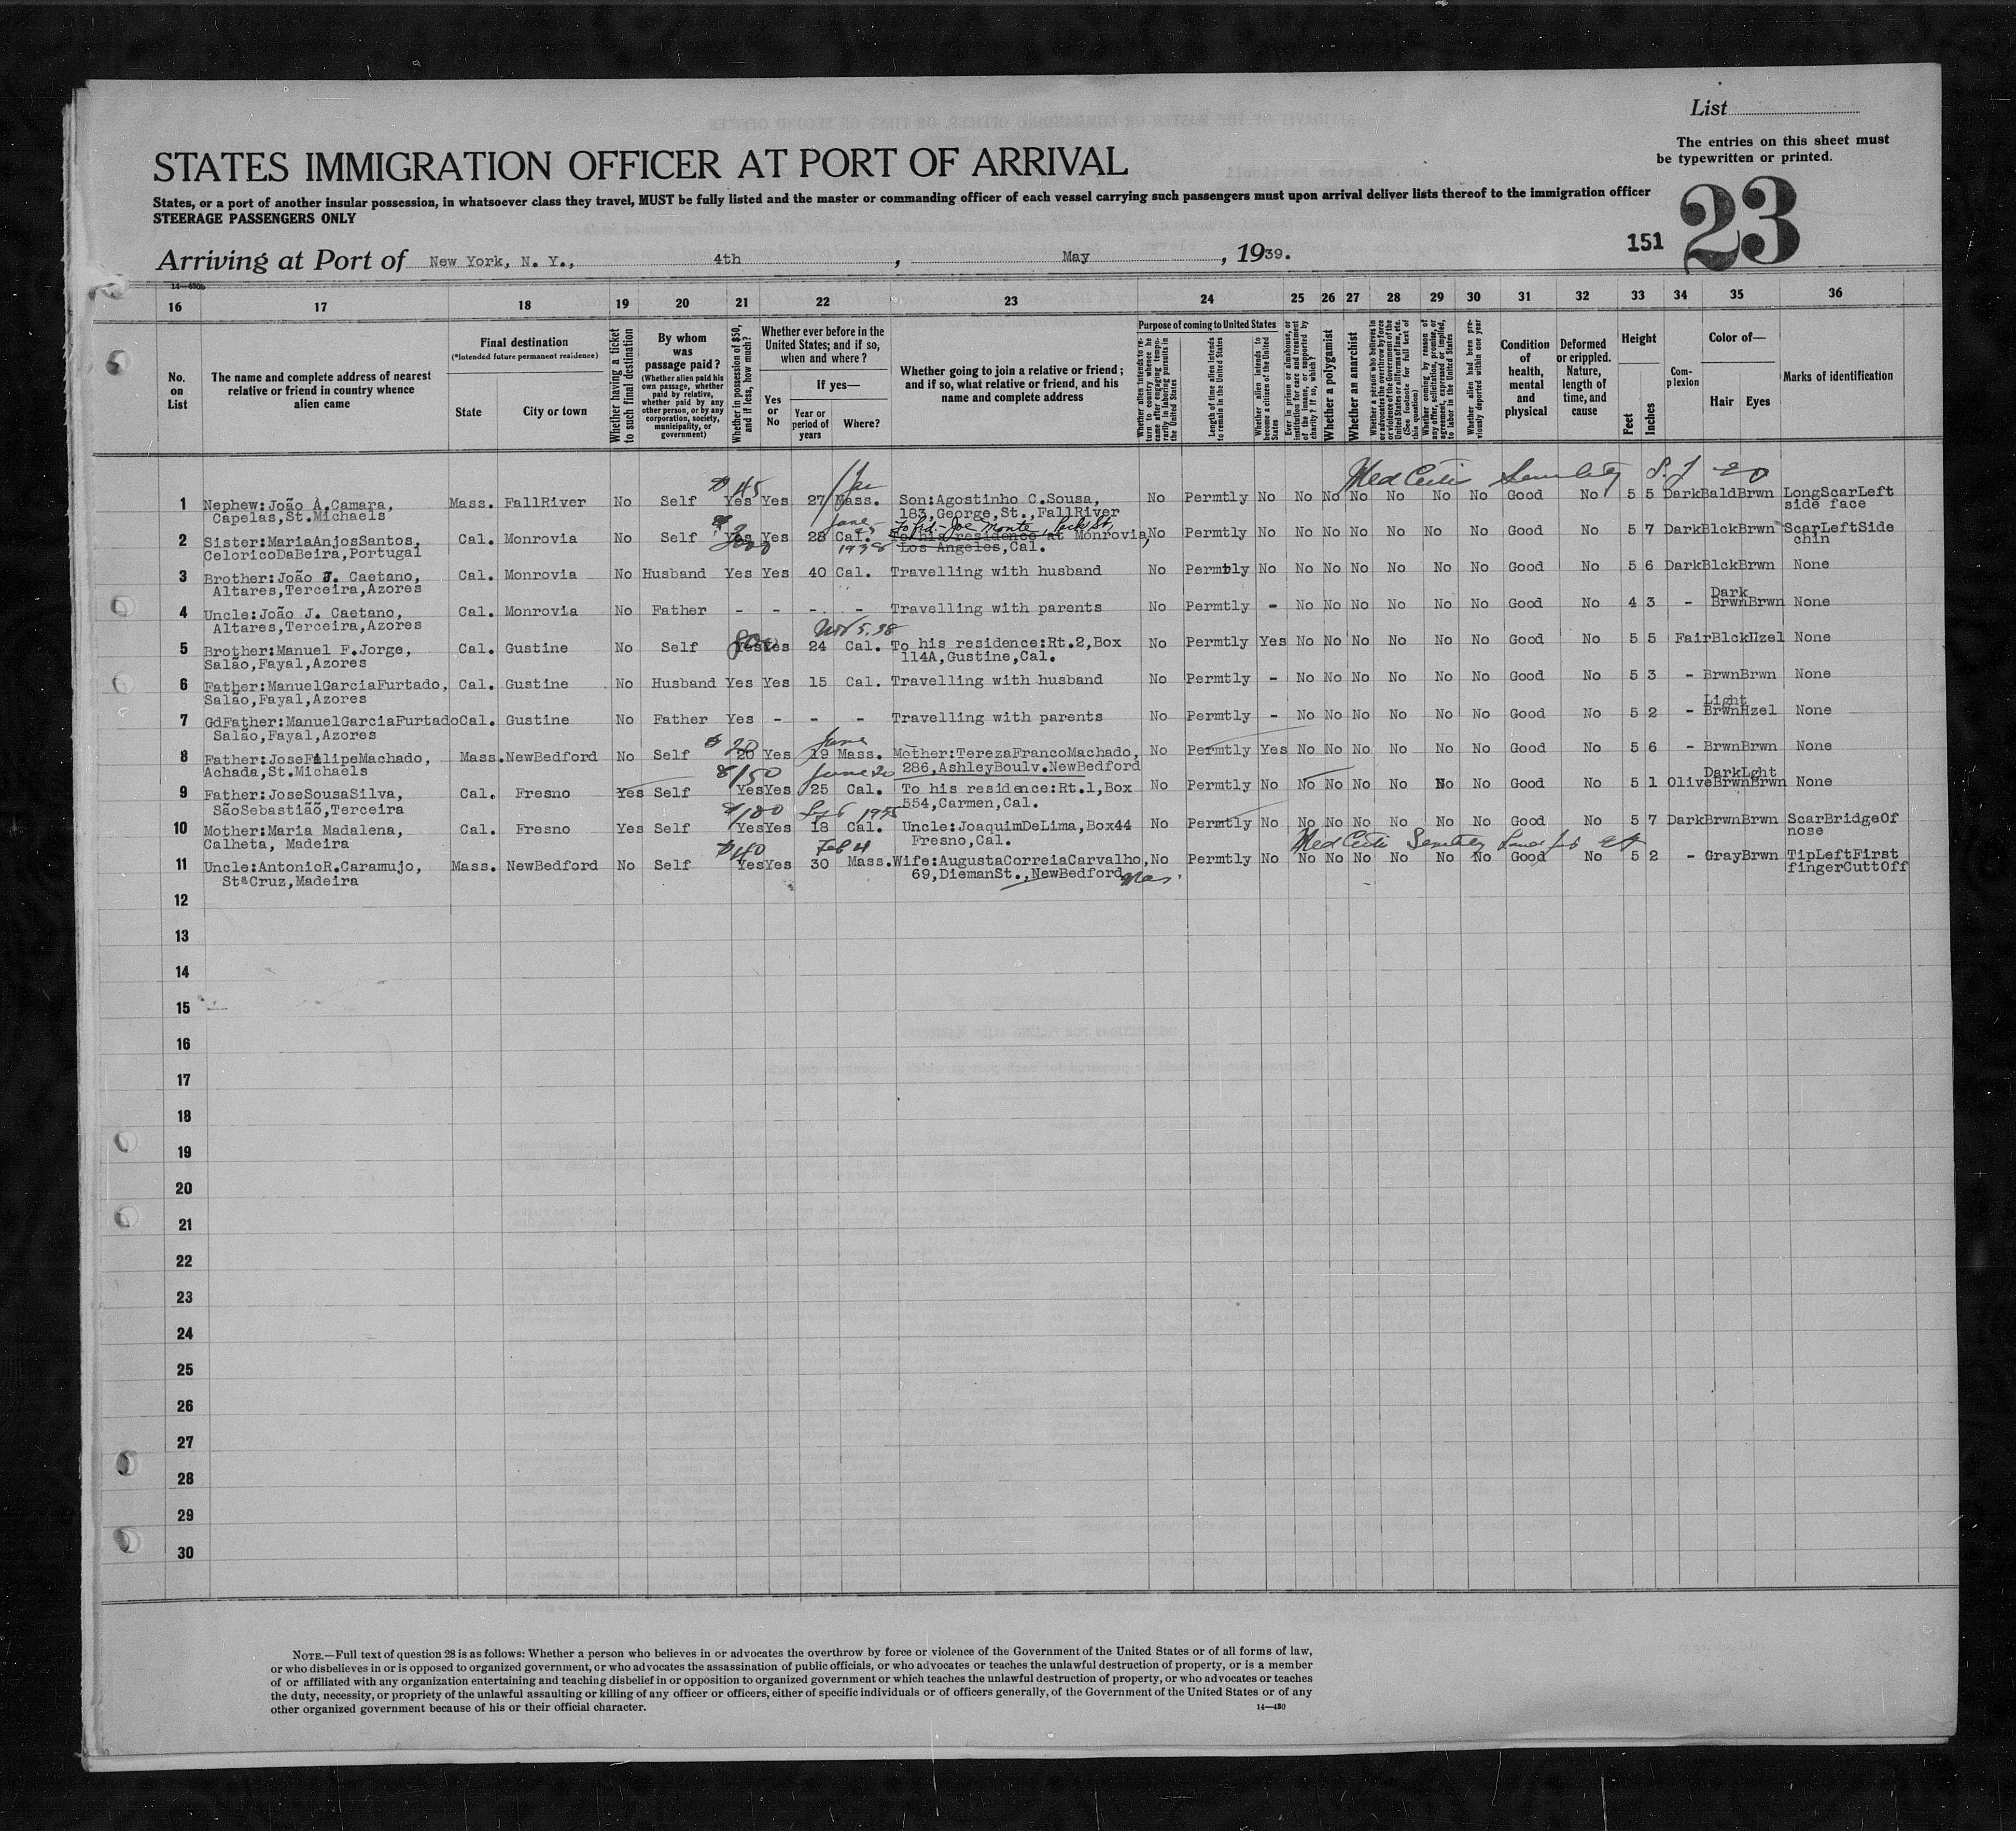 List
The entries on this sheet must
be typewritten or printed.
STATES IMMIGRATION OFFICER AT PORT OF ARRIVAL
States, or a port of another insular possession, in whatsoever class they travel, MUST be fully listed and the master or commanding officer of each vessel carrying such passengers must upon arrival deliver lists thereof to the immigration officer
STEERAGE PASSENGERS ONLY
151 23
Arriving at Port of New York, N. Y., 4th, May, 1939.
14—430b
16 17 18 19 20 21 22 23 24 25 26 27 28 29 30 31 32 33 34 35 36
No. on List
The name and complete address of nearest relative or friend in country whence alien came
Final destination
(*Intended future permanent residence)
State
City or town
Whether having a ticket to such final destination
By whom was passage paid?
(Whether alien paid his own passage, whether paid by relative, whether paid by any other person, or by any corporation, society, municipality, or government)
Whether in possession of $50, and if less, how much?
Whether ever before in the United States; and if so, when and where?
Yes or No
If yes—
Year or period of years
Where?
Whether going to join a relative or friend; and if so, what relative or friend, and his name and complete address
Purpose of coming to United States
Whether alien intends to return to country whence he came after engaging temporarily in laboring pursuits in the United States
Length of time alien intends to remain in the United States
Whether alien intends to become a citizen of the United States
Ever in prison or almshouse, or institution for care and treatment of the insane, or supported by charity? If so, which?
Whether a polygamist
Whether an anarchist
Whether a person who believes in or advocates the overthrow by force or violence of the Government of the United States or all forms of law, etc. (See footnote for full text of this question)
Whether coming by reason of any offer, solicitation, promise, or agreement, expressed or implied, to labor in the United States
Whether alien had been previously deported within one year
Condition of health, mental and physical
Deformed or crippled. Nature, length of time, and cause
Height
Feet
Inches
Complexion
Color of—
Hair Eyes
Marks of identification
$45 Med Certi Senility S.I
1 Nephew:João A.Camara, Mass. FallRiver No Self Yes Yes 27 Mass. Son:Agostinho C.Sousa, No Permtly No No No No No No No Good No 5 5 Dark Bald Brwn LongScarLeft
Capelas,St.Michaels 183,George,St.,FallRiver side face
June To frd- Joe Monte, Peck St,
2 Sister:MariaAnjosSantos, Cal. Monrovia No Self Yes Yes 28 Cal. To his residence at Monrovia, No Permtly No No No No No No No Good No 5 7 Dark Blck Brwn ScarLeftSide
CeloricoDaBeira,Portugal 1938 Los Angeles,Cal. chin
3 Brother:João J. Caetano, Cal. Monrovia No Husband Yes Yes 40 Cal. Travelling with husband No Permtly No No No No No No No Good No 5 6 Dark Blck Brwn None
Altares,Terceira,Azores
4 Uncle:João J. Caetano, Cal. Monrovia No Father - - - - Travelling with parents No Permtly - No No No No No No Good No 4 3 - Dark Brwn Brwn None
Altares,Terceira,Azores
800 Nov 5.38
5 Brother:Manuel F.Jorge, Cal. Gustine No Self Yes Yes 24 Cal. To his residence:Rt.2,Box No Permtly Yes No No No No No No Good No 5 5 Fair Blck Hzel None
Salão,Fayal,Azores 114A,Gustine,Cal.
6 Father:ManuelGarciaFurtado, Cal. Gustine No Husband Yes Yes 15 Cal. Travelling with husband No Permtly - No No No No No No Good No 5 3 - Brwn Brwn None
Salão,Fayal,Azores
7 GdFather:ManuelGarciaFurtado Cal. Gustine No Father Yes - - - Travelling with parents No Permtly - No No No No No No Good No 5 2 - Light Brwn Hzel None
Salão,Fayal,Azores
$20 June
8 Father:JoseFilipeMachado, Mass. NewBedford No Self 20 Yes 19 Mass. Mother:TerezaFrancoMachado, No Permtly Yes No No No No No No Good No 5 6 - Brwn Brwn None
Achada,St.Michaels 286,AshleyBoulv.NewBedford
$150 June 20
9 Father:JoseSousaSilva, Cal. Fresno Yes Self Yes Yes 25 Cal. To his residence:Rt.1,Box No Permtly No No No No No No No Good No 5 1 Olive DarkBrwn LghtBrwn None
SãoSebastiãõ,Terceira 554,Carmen,Cal.
$100
10 Mother:Maria Madalena, Cal. Fresno Yes Self Yes Yes 18 Cal. Uncle:JoaquimDeLima,Box44 No Permtly No No No No No No No Good No 5 7 Dark Brwn Brwn ScarBridgeOf
Calheta, Madeira Fresno,Cal. nose
$40 Feb 4 Med Certi Senility
11 Uncle:AntonioR.Caramujo, Mass. NewBedford No Self Yes Yes 30 Mass. Wife:AugustaCorreiaCarvalho, No Permtly No No No No No No No Good No 5 2 - Gray Brwn TipLeftFirst
StªCruz,Madeira 69,DiemanSt.,NewBedford Mas. fingerCuttOff
12
13
14
15
16
17
18
19
20
21
22
23
24
25
26
27
28
29
30
NOTE.—Full text of question 28 is as follows: Whether a person who believes in or advocates the overthrow by force or violence of the Government of the United States or of all forms of law,
or who disbelieves in or is opposed to organized government, or who advocates the assassination of public officials, or who advocates or teaches the unlawful destruction of property, or is a member
of or affiliated with any organization entertaining and teaching disbelief in or opposition to organized government or which teaches the unlawful destruction of property, or who advocates or teaches
the duty, necessity, or propriety of the unlawful assaulting or killing of any officer or officers, either of specific individuals or of officers generally, of the Government of the United States or of any
other organized government because of his or their official character.
14—430